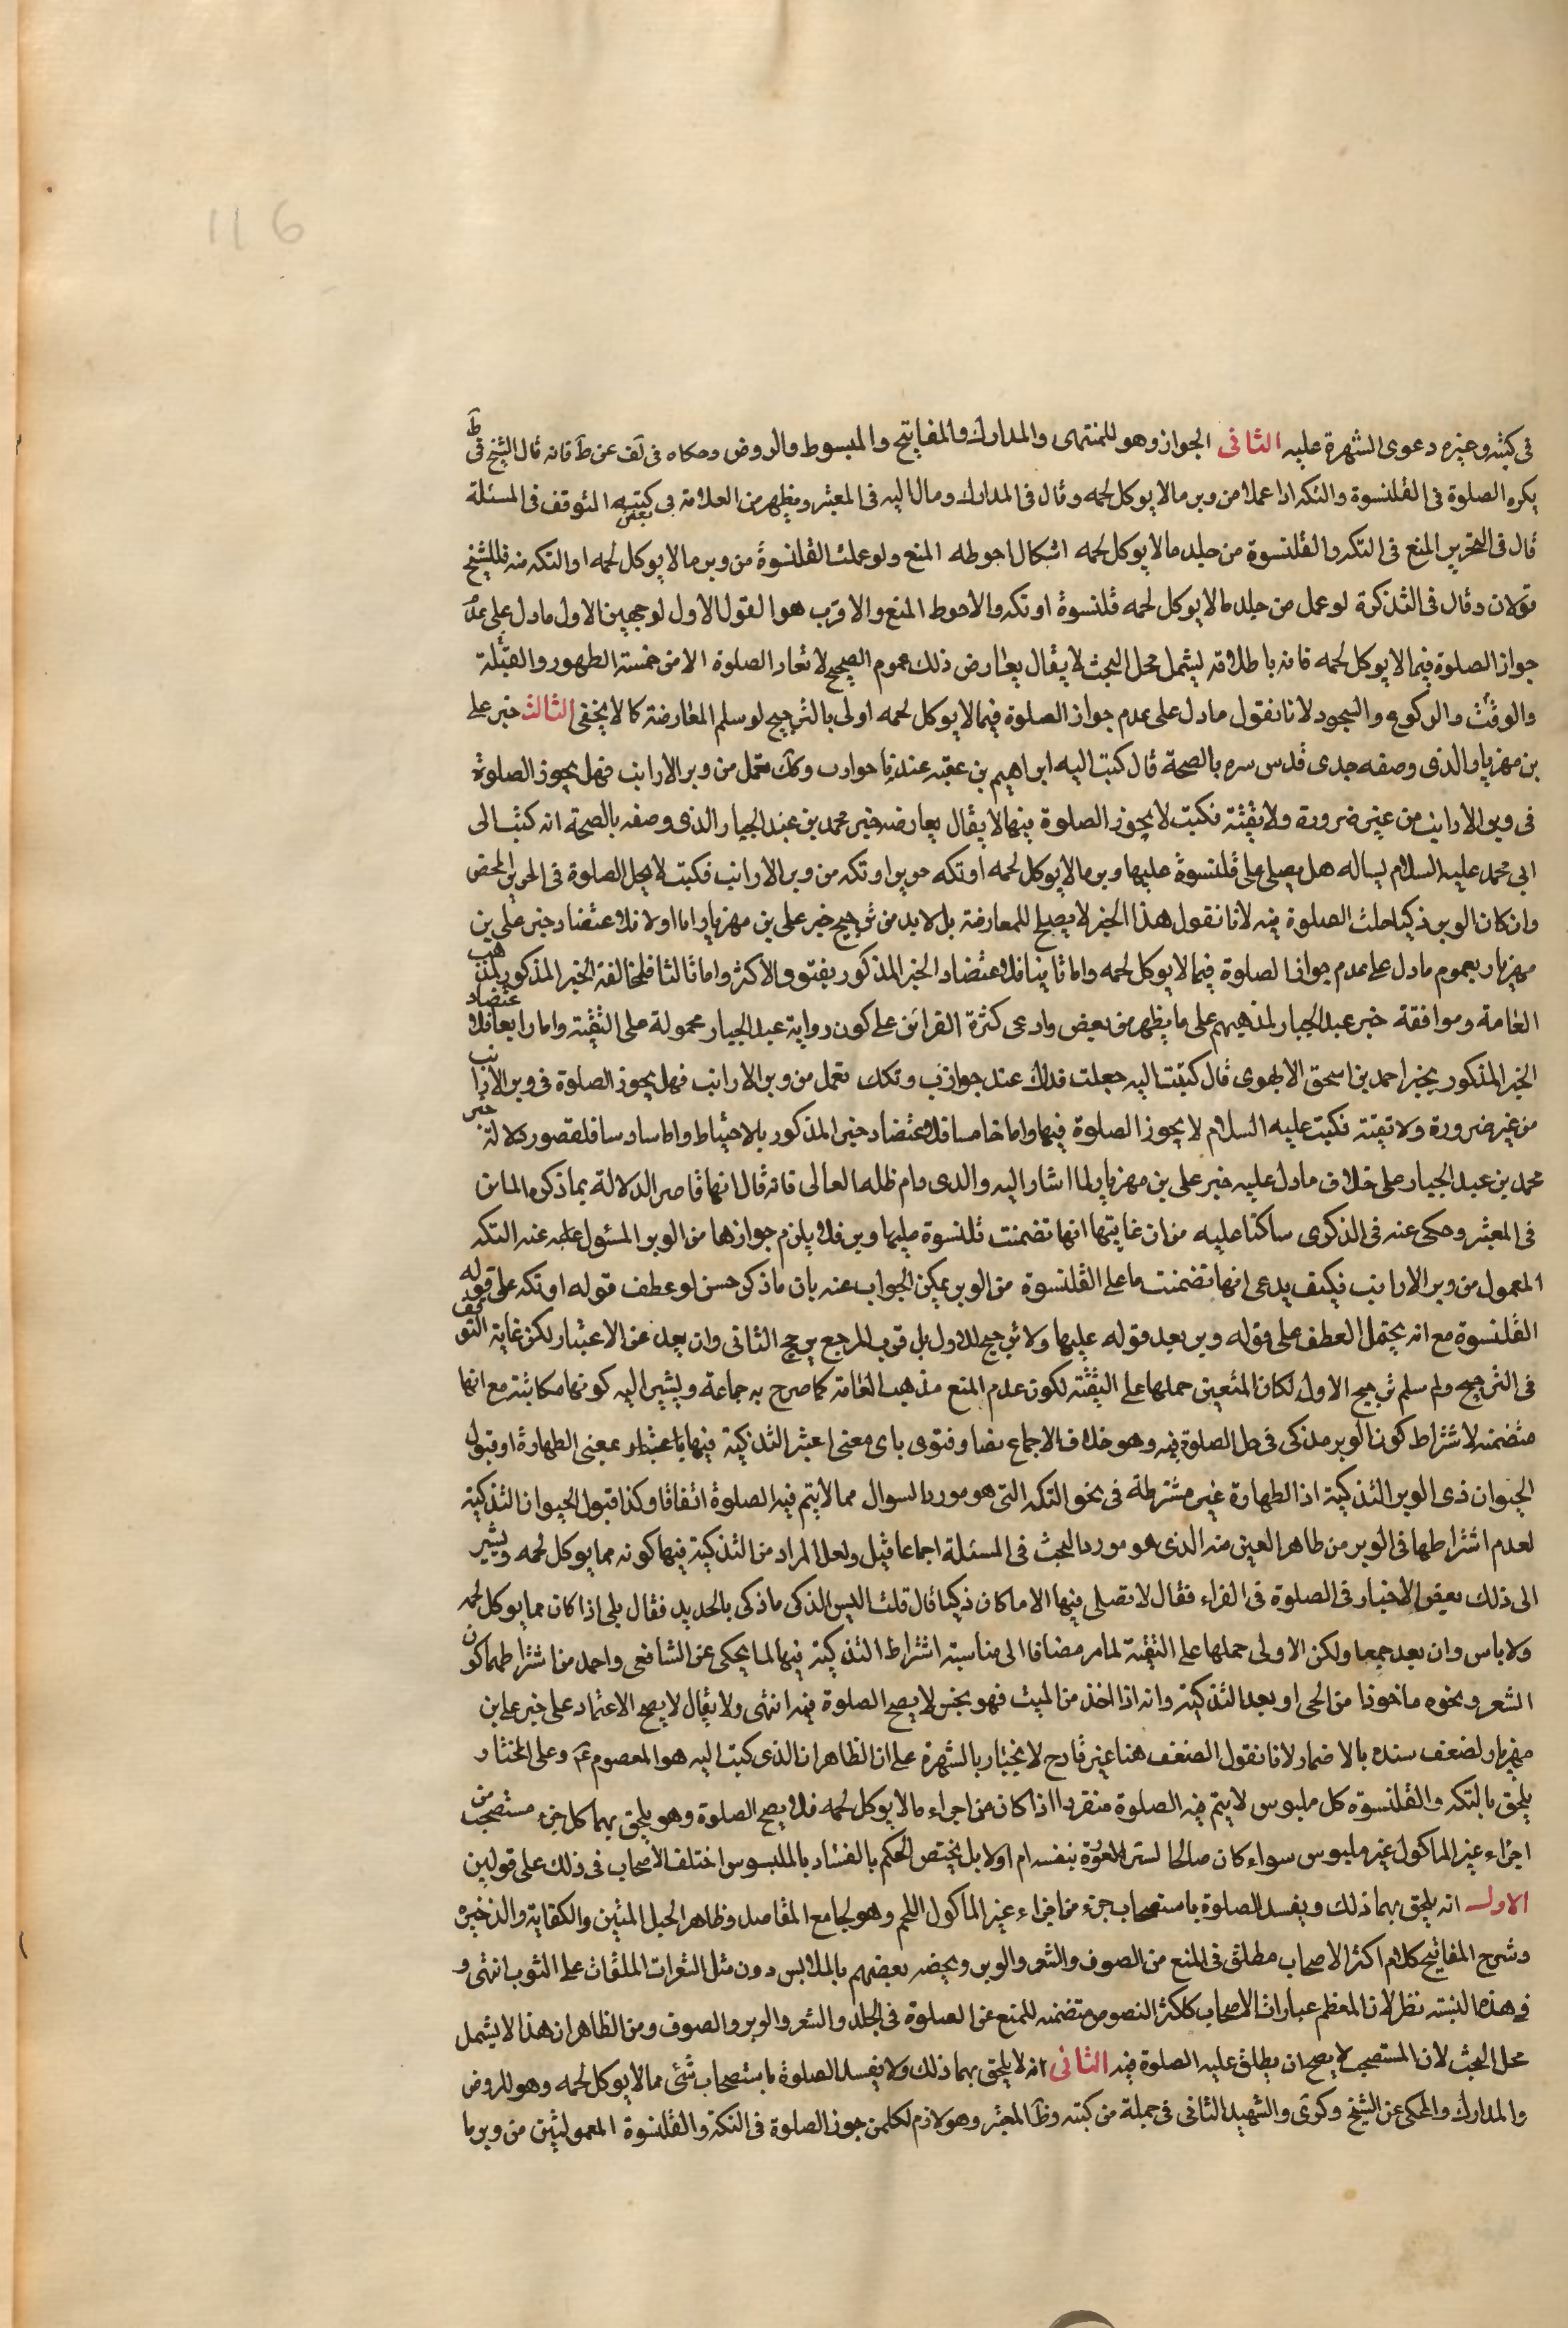 116
فى كتبه وغيره دعوى الشهرة عليه الثانى الجواز وهو للمنتهى والمدارك والمفاتيح والمبسوط والروض وحكاه فى لف عن ط فانه قال الشيخ فى ط
يكره الصلوة فى القلنسوة والتكه اذا عملا من وبر مالا يوكل لحمه وقال فى المدارك ومال اليه فى المعتبر ويظهر من العلامة فى بعض كتبه التوقف فى المسئلة
قال فى التحرير المنع فى التكه والقلنسوة من جلد مالا يوكل لحمه اشكال احوطه المنع ولو عملت القلنسوة من وبر مالا يوكل لحمه او التكه منه فللشيخ
قولان وقال فى التذكرة لو عمل من جلد مالا يوكل لحمه قلنسوة او تكه والاحوط المنع والاقرب هو القول الاول لوجهين الاول ما دل على عدم
جواز الصلوة فيما لا يوكل لحمه فانه باطلاقه يشمل محل البحث لا يقال يعارض ذلك عموم الصحيح لا تعاد الصلوة الا من خمسة الطهور والقبلة
والوقت والركوع والسجود لانا نقول ما دل على عدم جواز الصلوة فيما لا يوكل لحمه اولى بالترجيح لو سلم المعارضة كما لا يخفى الثالث خبر على
بن مهزيار الذى وصفه جدى قدس سره بالصحة قال كتب اليه ابراهيم بن عقبه عندنا جوارب وتكك تعمل من وبر الارانب فهل يجوز الصلوة
فى وبر الارانب من غير ضرورة ولا تقية فكتب لا يجوز الصلوة فيها لا يقال يعارضه خبر محمد بن عبد الجبار الذى وصفه بالصحة انه كتب الى
ابى محمد عليه السلام يساله هل يصلى على قلنسوة عليها وبر مالا يوكل لحمه او تكه حرير او تكه من وبر الارانب فكتب لا يحل الصلوة فى الحرير المحض
وان كان الوبر ذكيا حلت الصلوة فيه لانا نقول هذا الخبر لا يصلح للمعارضة بل لا بد من ترجيح خبر على بن مهزيار اما اولا فلاعتضاد خبر على بن
مهزيار بعموم ما دل على عدم جواز الصلوة فيما لا يوكل لحمه واما ثانيا فلاعتضاد الخبر المذكور بفتوى الاكثر واما ثالثا فلمخالفة الخبر المذكور لمذهب
العامة وموافقة خبر عبد الجبار لمذهبهم على ما يظهر من بعض وادعى كثرة القرائن على كون رواية عبد الجبار محمولة على التقية واما رابعا فلاعتضاد
الخبر المذكور بخبر احمد بن اسحق الابهرى قال كتبت اليه جعلت فداك عندنا جوارب وتكك تعمل من وبر الارانب فهل يجوز الصلوة فى وبر الارانب
من غير ضرورة ولا تقية فكتب عليه السلام لا يجوز الصلوة فيها واما خامسا فلاعتضاد خبر المذكور بالاحتياط واما سادسا فلقصور دلالة خبر
محمد بن عبد الجبار على خلاف ما دل عليه خبر على بن مهزيار لما اشار اليه والدى دام ظله العالى فانه قال انها قاصر الدلالة بما ذكره الماتن
فى المعتبر وحكى عنه فى الذكرى ساكتا عليه من ان غايتها انها تضمنت قلنسوة عليها وبر فلا يلزم جوازها من الوبر المسئول عنه التكه
المعمول من وبر الارانب فكيف يدعى انها تضمنت ما على القلنسوة من الوبر يمكن الجواب عنه بان ما ذكر حسن لو عطف قوله او تكه على قوله
القلنسوة مع انه يحتمل العطف على قوله وبر بعد قوله عليها ولا ترجيح للاول بل قرب المرجع يرجح الثانى وان بعد عن الاعتبار لكن غاية التوقف
فى الترجيح ولم سلم ترجيح الاول لكان المتعين حملها على التقية لكون عدم المنع مذهب العامة كما صرح به جماعة ويشير اليه كونها مكاتبة مع انها
متضمنه لاشتراط كون الوبر مذكى فى حل الصلوة فيه وهو خلاف الاجماع نصا وفتوى باى معنى اعتبر التذكية فيها باعتبار بمعنى الطهارة او قبول
الحيوان ذى الوبر التذكية اذ الطهارة غير مشترطة فى نحو التكه التى هو مورد السوال مما لا يتم فيه الصلوة اتفاقا وكذا قبول الحيوان التذكية
لعدم اشتراطها فى الوبر من طاهر العين منه الذى هو مورد البحث فى المسئلة اجماعا قيل ولعل المراد من التذكية فيها كونه مما يوكل لحمه ويشير
الى ذلك بعض الاخبار فى الصلوة فى الفراء فقال لا تصلى فيها الا ما كان ذكيا قال قلت اليس الذكى ما ذكى بالحديد فقال بلى اذا كان مما يوكل لحمه
ولا باس وان بعد جمعا ولكن الاولى حملها على التقية لما مر مضافا الى مناسبة اشتراط التذكية فيها لما يحكى عن الشافعى واحمد من اشتراطهما كون
الشعر ونحوه ماخوذا من الحى او بعد التذكية وانه اذا اخذ من الميت فهو نجس لا يصح الصلوة فيه انتهى ولا يقال لا يصح الاعتماد على خبر على بن
مهزيار لضعف سنده بالاضمار لانا نقول الضعف هنا غير قادح لانجباره بالشهرة على ان الظاهر ان الذى كتب اليه هو المعصوم ع وعلى المختار
يلحق بالتكه والقلنسوة كل ملبوس لا يتم فيه الصلوة منفردا اذا كان من اجزاء مالا يوكل لحمه فلا يصح الصلوة وهو يلحق بهما كل جزء مستصحب من
اجزاء غير الماكول غير ملبوس سواء كان صالحا لستر العورة بنفسه ام اولا بل يختص الحكم بالفساد بالملبوس اختلف الاصحاب فى ذلك على قولين
الاول انه يلحق بهما ذلك ويفسد الصلوة باستصحاب جزء من اجزاء غير الماكول اللحم وهو لجامع المقاصد وظاهر الحبل المتين والكفاية والذخيرة
وشرح المفاتيح كلام اكثر الاصحاب مطلق فى المنع من الصوف والشعر والوبر ويخصه بعضهم بالملابس دون مثل الشعرات الملقاة على الثوب انتهى و
فى هذه النسبة نظر لان المعظم عبارات الاصحاب كاكثر النصوص متضمنه للمنع عن الصلوة فى الجلد والشعر والوبر والصوف ومن الظاهر ان هذا لا يشمل
محل البحث لان المستصحب لا يصح ان يطلق عليه الصلوة فيه الثانى انه لا يلحق بهما ذلك ولا يفسد الصلوة باستصحاب شئ مما لا يوكل لحمه وهو للروض
والمدارك والمحكى عن الشيخ وكرى والشهيد الثانى فى جملة من كتبه وظ المعتبر وهو لازم لكل من جوز الصلوة فى التكه والقلنسوة المعمولتين من وبر ما